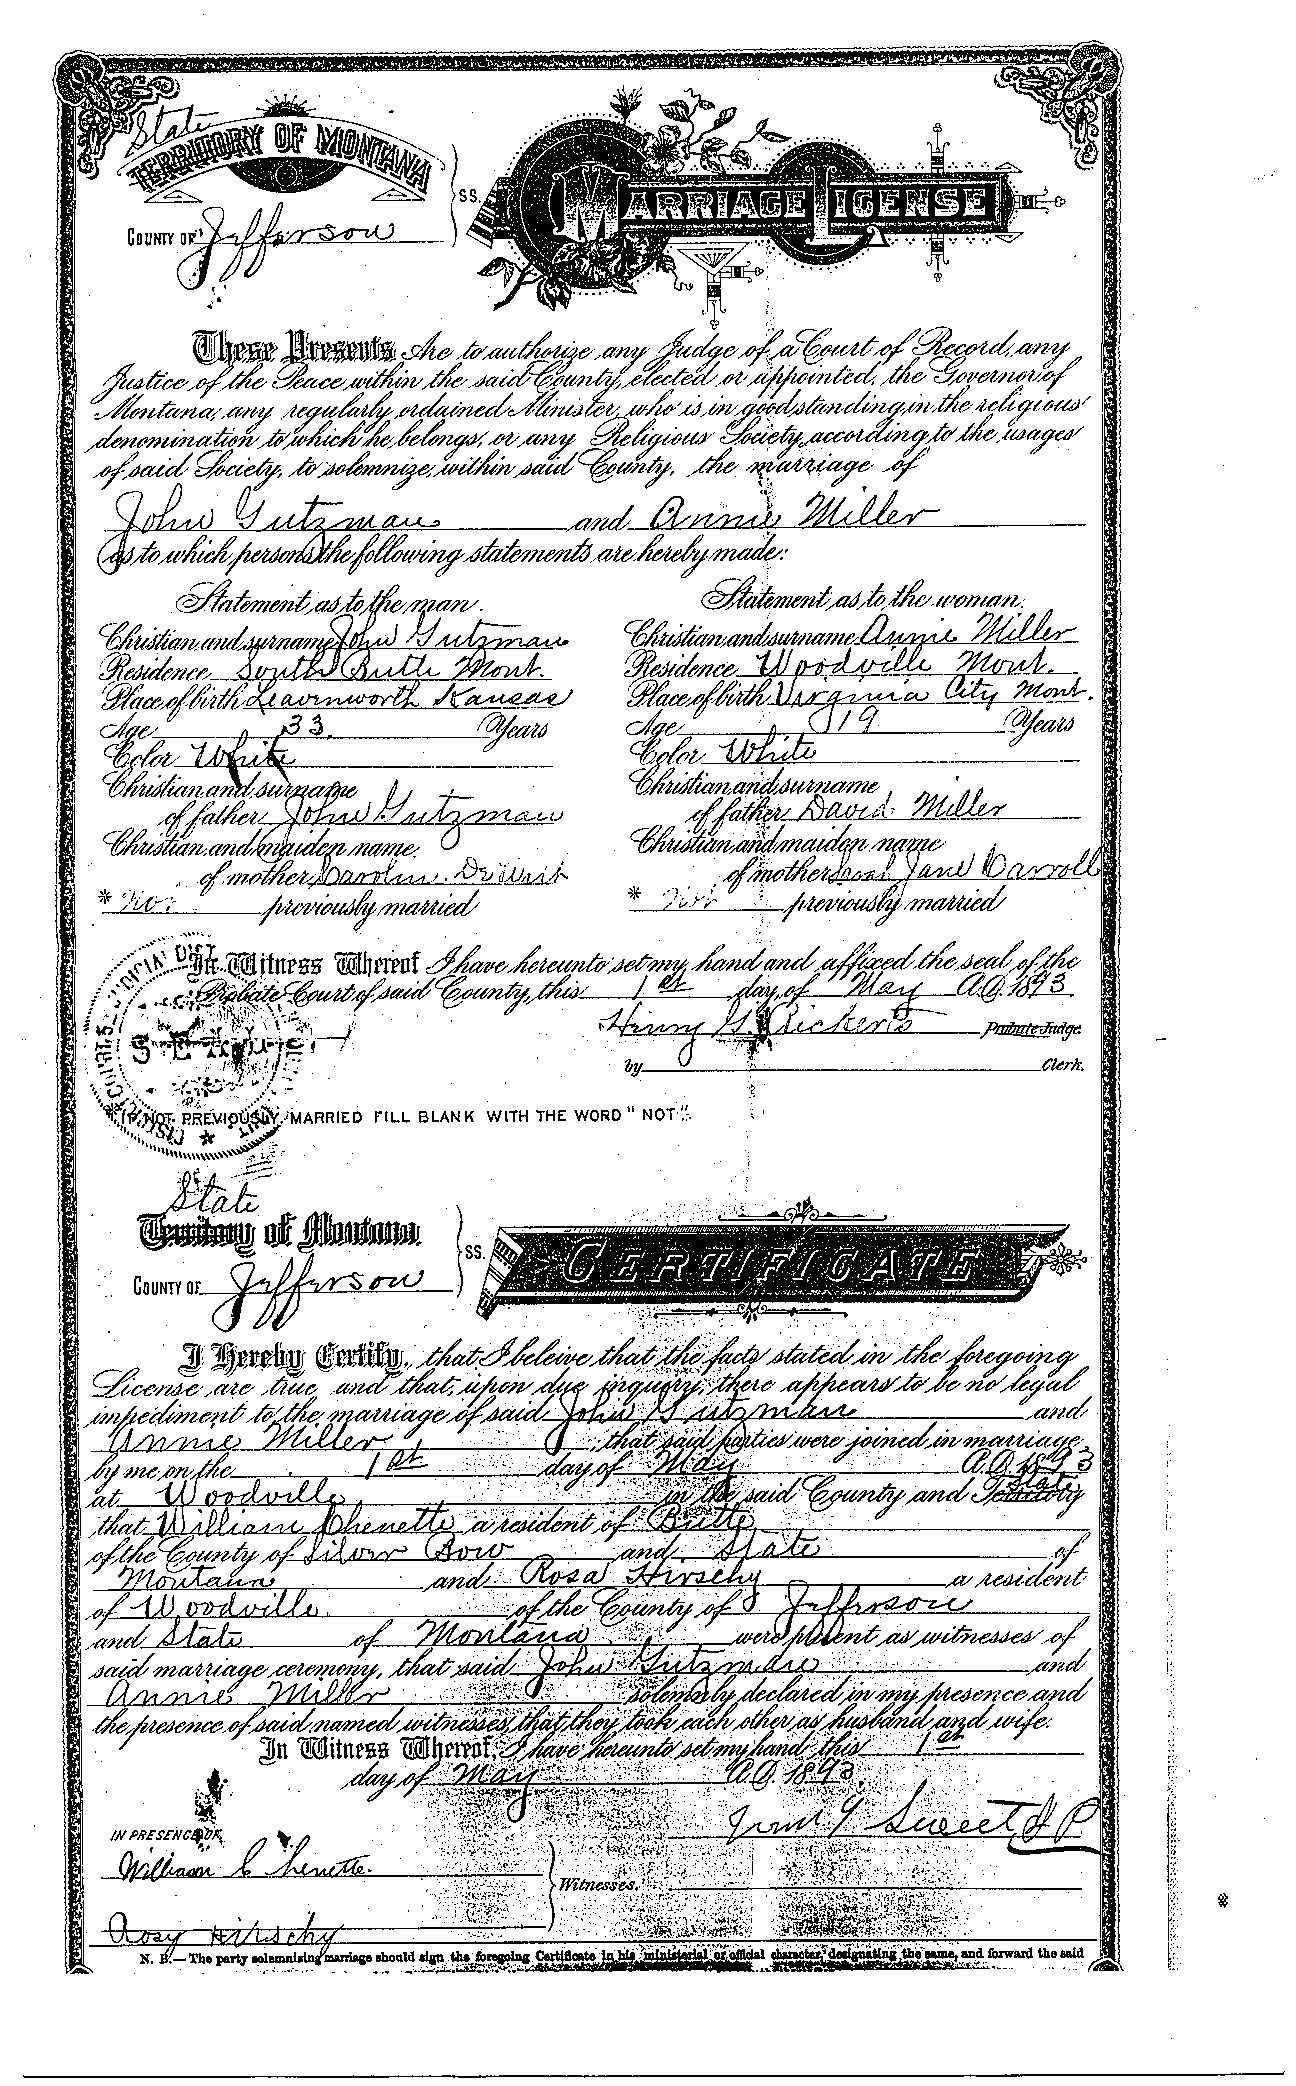 State
TERRITORY OF MONTANA
SS.
MARRIAGE LICENSE
COUNTY OF Jefferson
These Presents Are to authorize any Judge of a Court of Record, any
Justice of the Peace within the said County, elected or appointed, the Governor of
Montana, any regularly ordained Minister, who is in good standing in the religious
denomination to which he belongs, or any Religious Society, according to the usages
of said Society, to solemnize, within said County, the marriage of
John Gutzman and Annie Miller
as to which persons the following statements are hereby made:
Statement as to the man.
Christian and surname John Gutzman
Residence South Butte Mont.
Place of birth Leavinworth Kansas
Age 33 Years
Color White
Christian and surname
of father John Gutzman
Christian and maiden name
of mother Carolin
* Not previously married
Statement as to the woman.
Christian and surname Annie Miller
Residence Woodville Mont.
Place of birth Virginia City Mont.
Age 19 Years
Color White
Christian and surname
of father David Miller
Christian and maiden name
of mother Jane Carroll
* Not previously married
In Witness Whereof I have hereunto set my hand and affixed the seal of the
Probate Court of said County, this 1st day of May A.D. 1893
Henry G. Rickerts Probate Judge
by Clerk.
SEAL
* IF NOT PREVIOUSLY MARRIED FILL BLANK WITH THE WORD "NOT".
State
Territory of Montana
SS.
CERTIFICATE
COUNTY OF Jefferson
I Hereby Certify, that I beleive that the facts stated in the foregoing
License are true, and that, upon due inquiry, there appears to be no legal
impediment to the marriage of said John Gutzman and
Annie Miller, that said parties were joined in marriage
by me on the 1st day of May A.D. 1893
State
at Woodville in the said County and Territory
that William Chenette a resident of Butte
of the County of Silver Bow and State of
Montana and Rosa Hirschy a resident
of Woodville of the County of Jefferson
and State of Montana were present as witnesses of
said marriage ceremony, that said John Gutzman and
Annie Miller solemnly declared in my presence and
the presence of said named witnesses, that they took each other as husband and wife.
In Witness Whereof, I have hereunto set my hand this 1st
day of May A.D. 1893
Sweet J P
IN PRESENCE OF
William Chenette.
Witnesses.
Rosy Hirschy
N. B.—The party solemnizing marriage should sign the foregoing Certificate in his ministerial or official character, designating the same, and forward the said